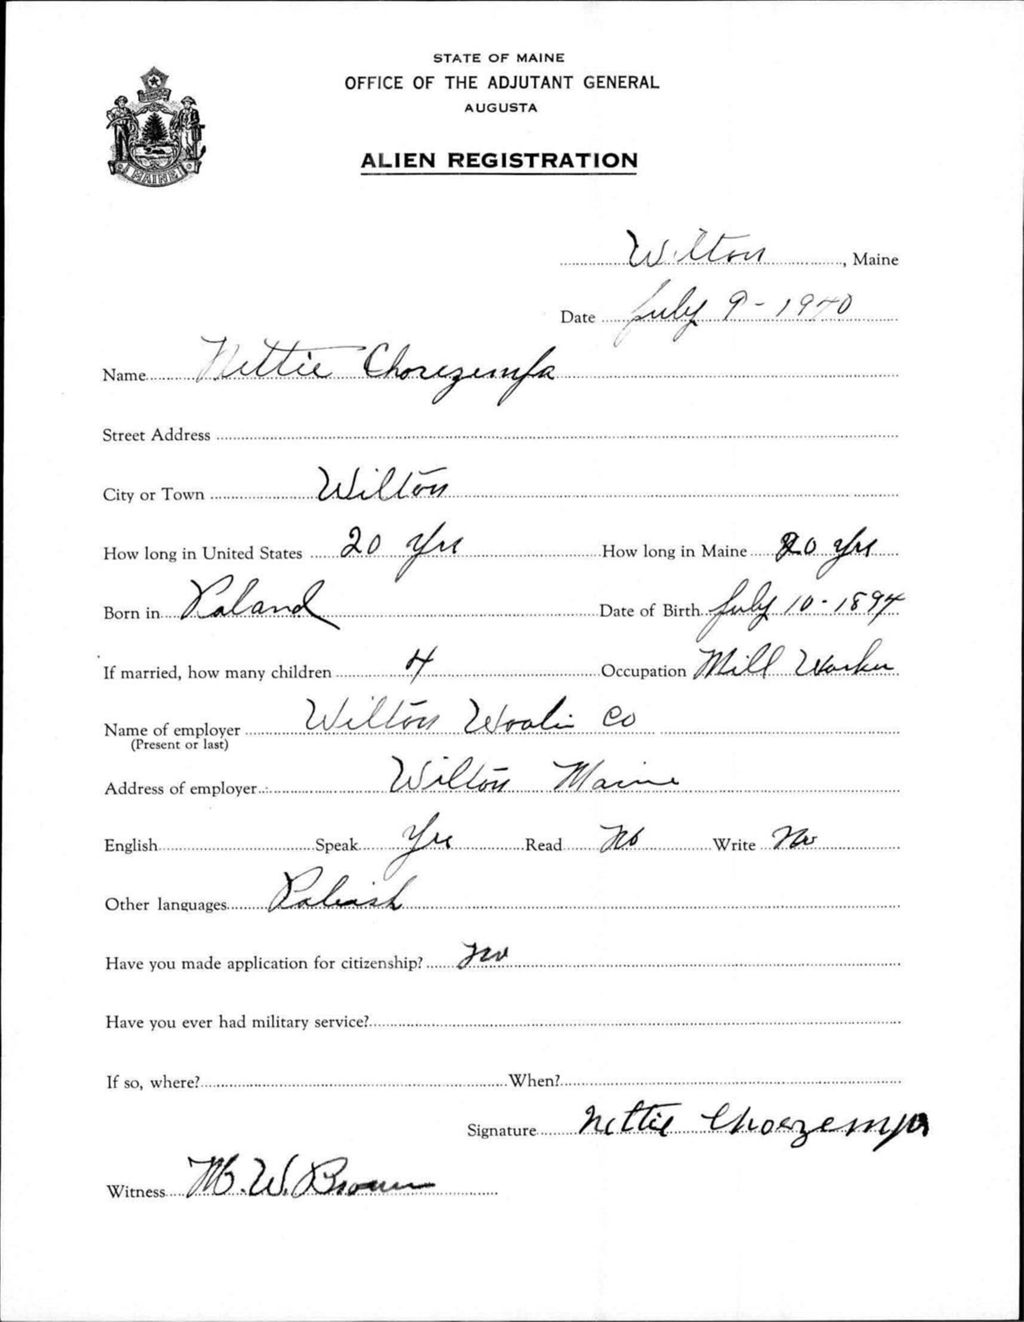 STATE OF MAINE
OFFICE OF THE ADJUTANT GENERAL
AUGUSTA
MAINE
ALIEN REGISTRATION
Wilton, Maine
Date July 9 - 1940
Name Nettie Chorezempa
Street Address
City or Town Wilton
How long in United States 20 Yrs How long in Maine 20 yrs
Born in Poland Date of Birth July 10 - 1894
If married, how many children 4 Occupation Mill Worker
Name of employer Wilton Woolin Co
(Present or last)
Address of employer Wilton Maine
English Speak Yes Read No Write No
Other languages Polish
Have you made application for citizenship? No
Have you ever had military service?
If so, where? When?
Signature Nettie Choezempa
Witness M. W. Brown